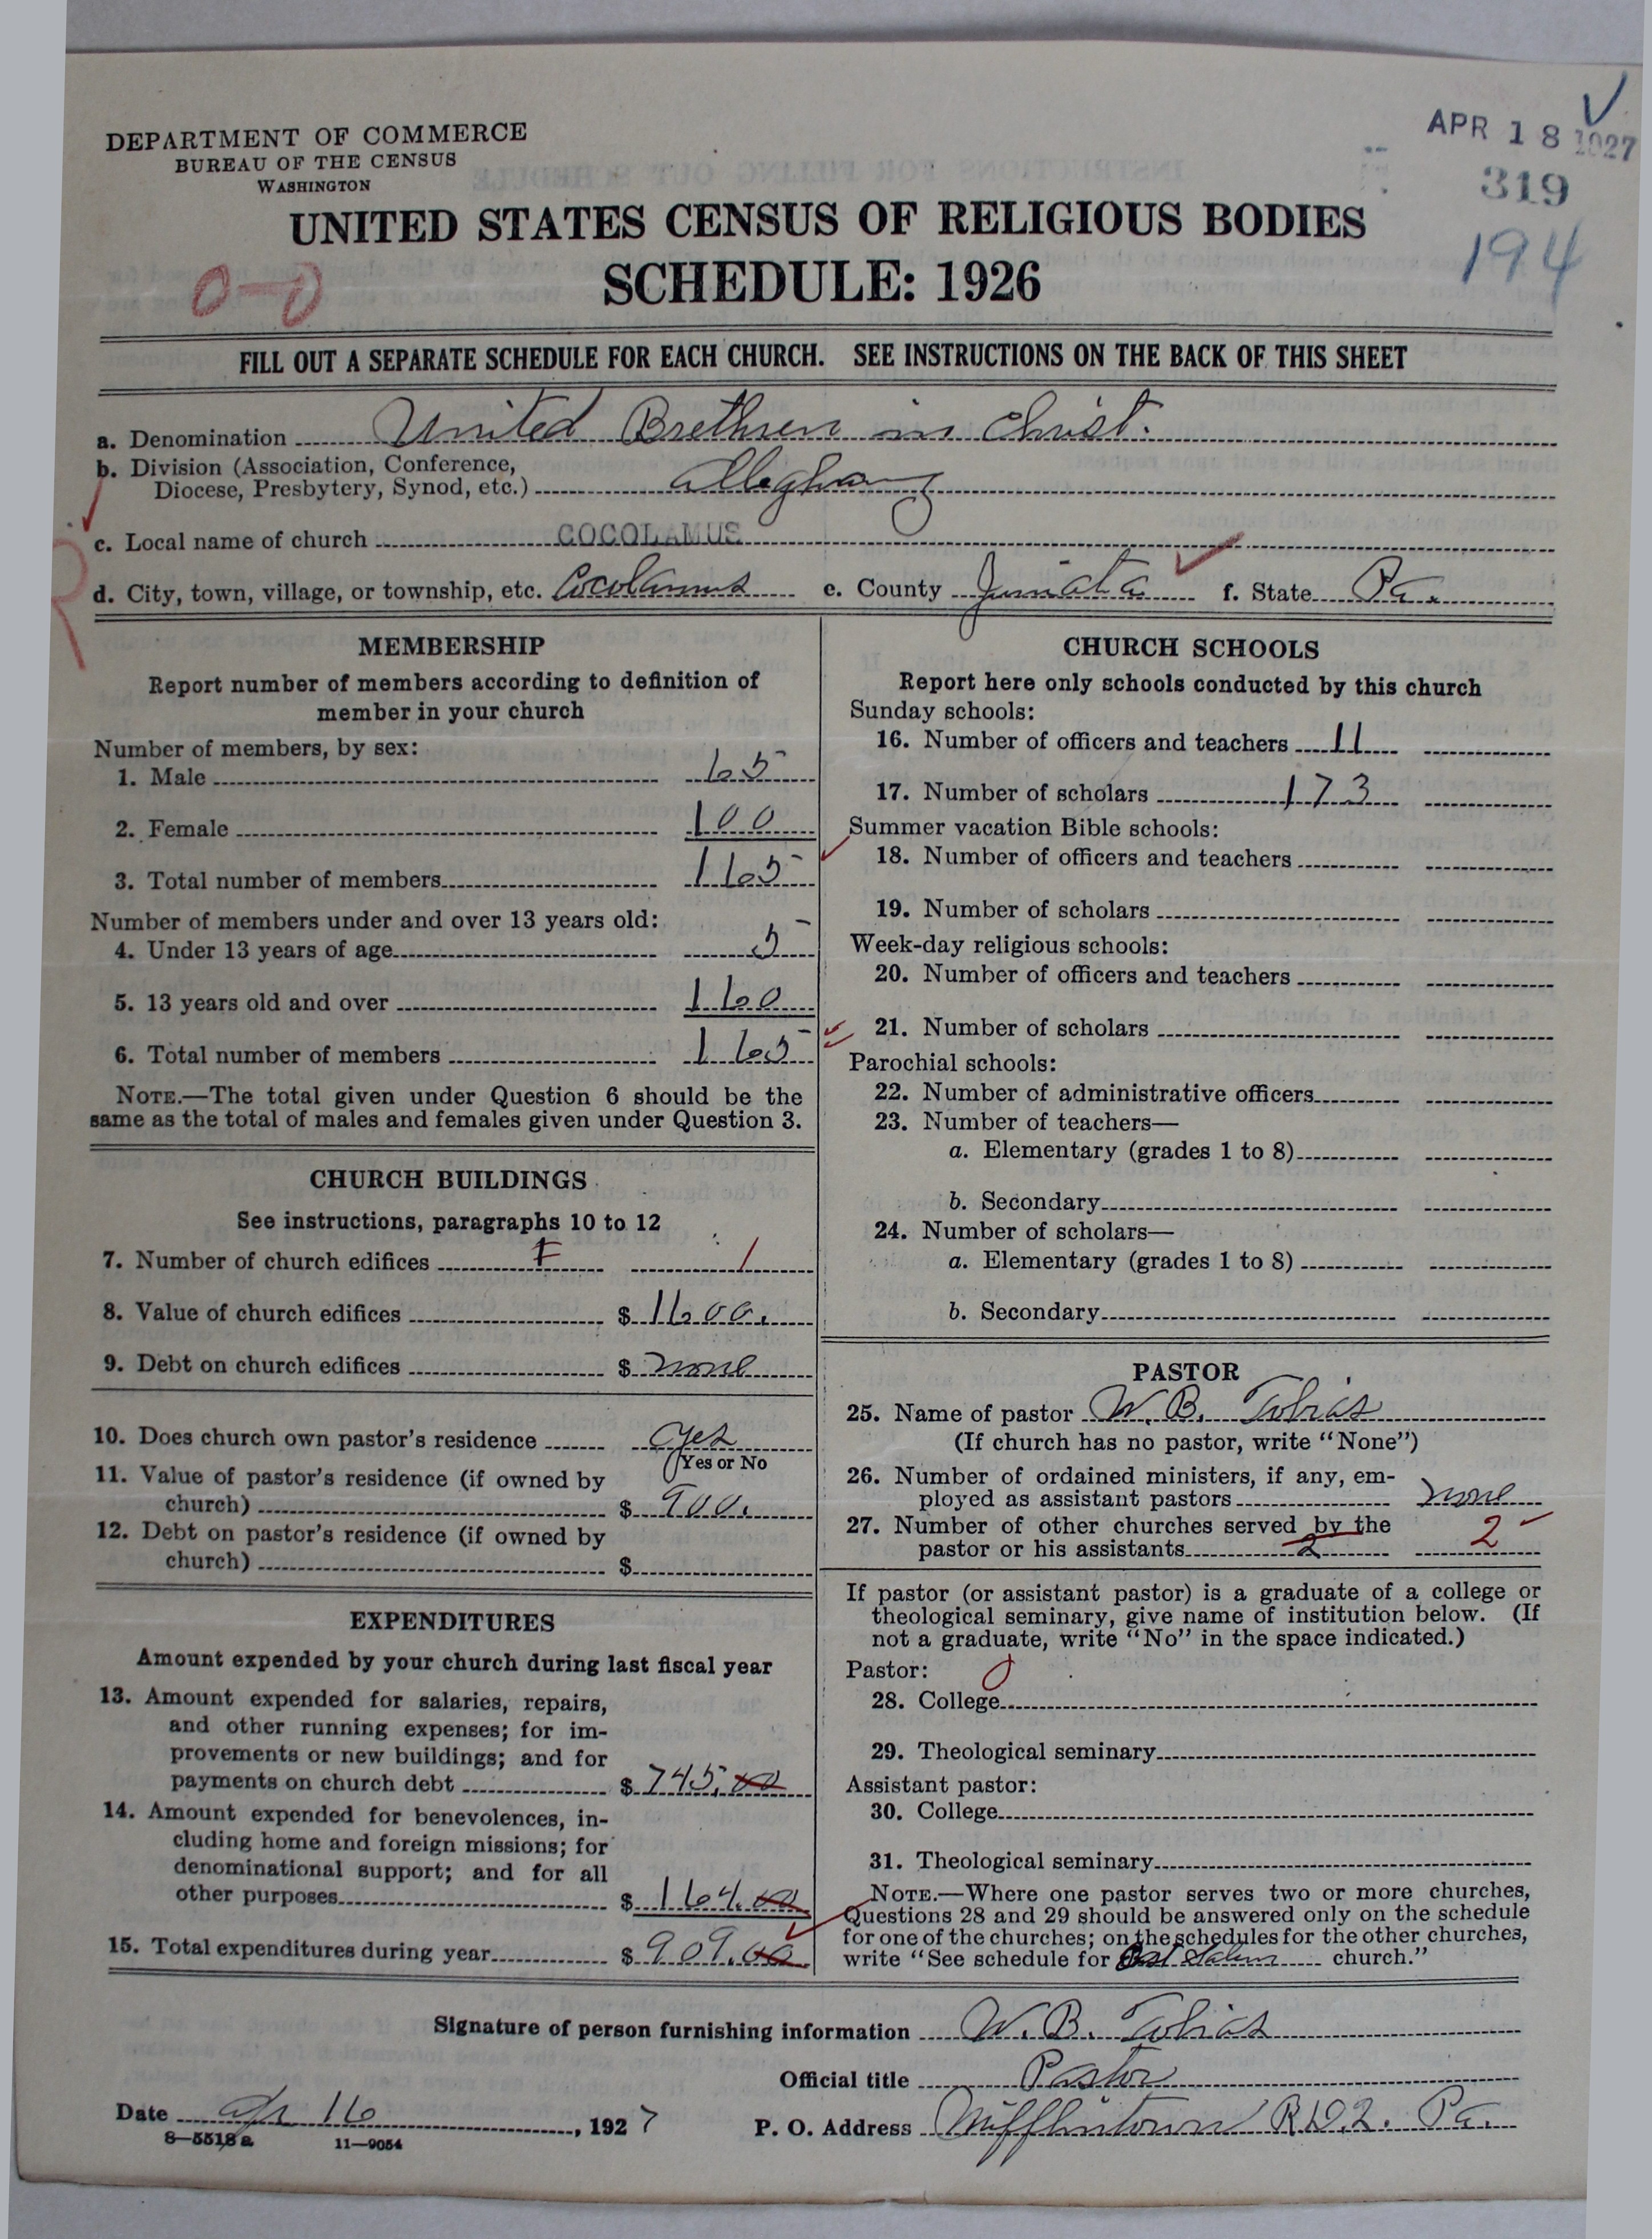 DEPARTMENT OF COMMERCE
BUREAU OF THE CENSUS
WASHINGTON
APR 18 1927
319
194
UNITED STATES CENSUS OF RELIGIOUS BODIES
SCHEDULE: 1926
0-0
FILL OUT A SEPARATE SCHEDULE FOR EACH CHURCH. SEE INSTRUCTIONS ON THE BACK OF THIS SHEET
a. Denomination United Brethren in Christ.
b. Division (Association, Conference,
Diocese, Presbytery, Synod, etc.) Alleghany
c. Local name of church COCOLAMUS
d. City, town, village, or township, etc. Cocolamus e. County Juniata f. State Pa.
MEMBERSHIP
Report number of members according to definition of
member in your church
Number of members, by sex:
1. Male 65
2. Female 100
3. Total number of members 165
Number of members under and over 13 years old:
4. Under 13 years of age 5
5. 13 years old and over 160
6. Total number of members 165
NOTE.—The total given under Question 6 should be the
same as the total of males and females given under Question 3.
CHURCH BUILDINGS
See instructions, paragraphs 10 to 12
7. Number of church edifices F 1
8. Value of church edifices $ 1600.
9. Debt on church edifices $ none
10. Does church own pastor's residence yes
Yes or No
11. Value of pastor's residence (if owned by
church) $ 900.
12. Debt on pastor's residence (if owned by
church) $
EXPENDITURES
Amount expended by your church during last fiscal year
13. Amount expended for salaries, repairs,
and other running expenses; for im-
provements or new buildings; and for
payments on church debt $ 745.00
14. Amount expended for benevolences, in-
cluding home and foreign missions; for
denominational support; and for all
other purposes $ 164.00
15. Total expenditures during year $ 909.00
CHURCH SCHOOLS
Report here only schools conducted by this church
Sunday schools:
16. Number of officers and teachers 11
17. Number of scholars 173
Summer vacation Bible schools:
18. Number of officers and teachers
19. Number of scholars
Week-day religious schools:
20. Number of officers and teachers
21. Number of scholars
Parochial schools:
22. Number of administrative officers
23. Number of teachers—
a. Elementary (grades 1 to 8)
b. Secondary
24. Number of scholars—
a. Elementary (grades 1 to 8)
b. Secondary
PASTOR
25. Name of pastor W. B. Tobias
(If church has no pastor, write "None")
26. Number of ordained ministers, if any, em-
ployed as assistant pastors none
27. Number of other churches served by the
pastor or his assistants 2 2
If pastor (or assistant pastor) is a graduate of a college or
theological seminary, give name of institution below. (If
not a graduate, write "No" in the space indicated.)
Pastor: 0
28. College
29. Theological seminary
Assistant pastor:
30. College
31. Theological seminary
NOTE.—Where one pastor serves two or more churches,
Questions 28 and 29 should be answered only on the schedule
for one of the churches; on the schedules for the other churches,
write "See schedule for East Salem church."
Signature of person furnishing information W. B. Tobias
Official title Pastor
Date Apr 16, 1927 P. O. Address Mifflintown R.D.2. Pa.
8—5518 a 11—9054